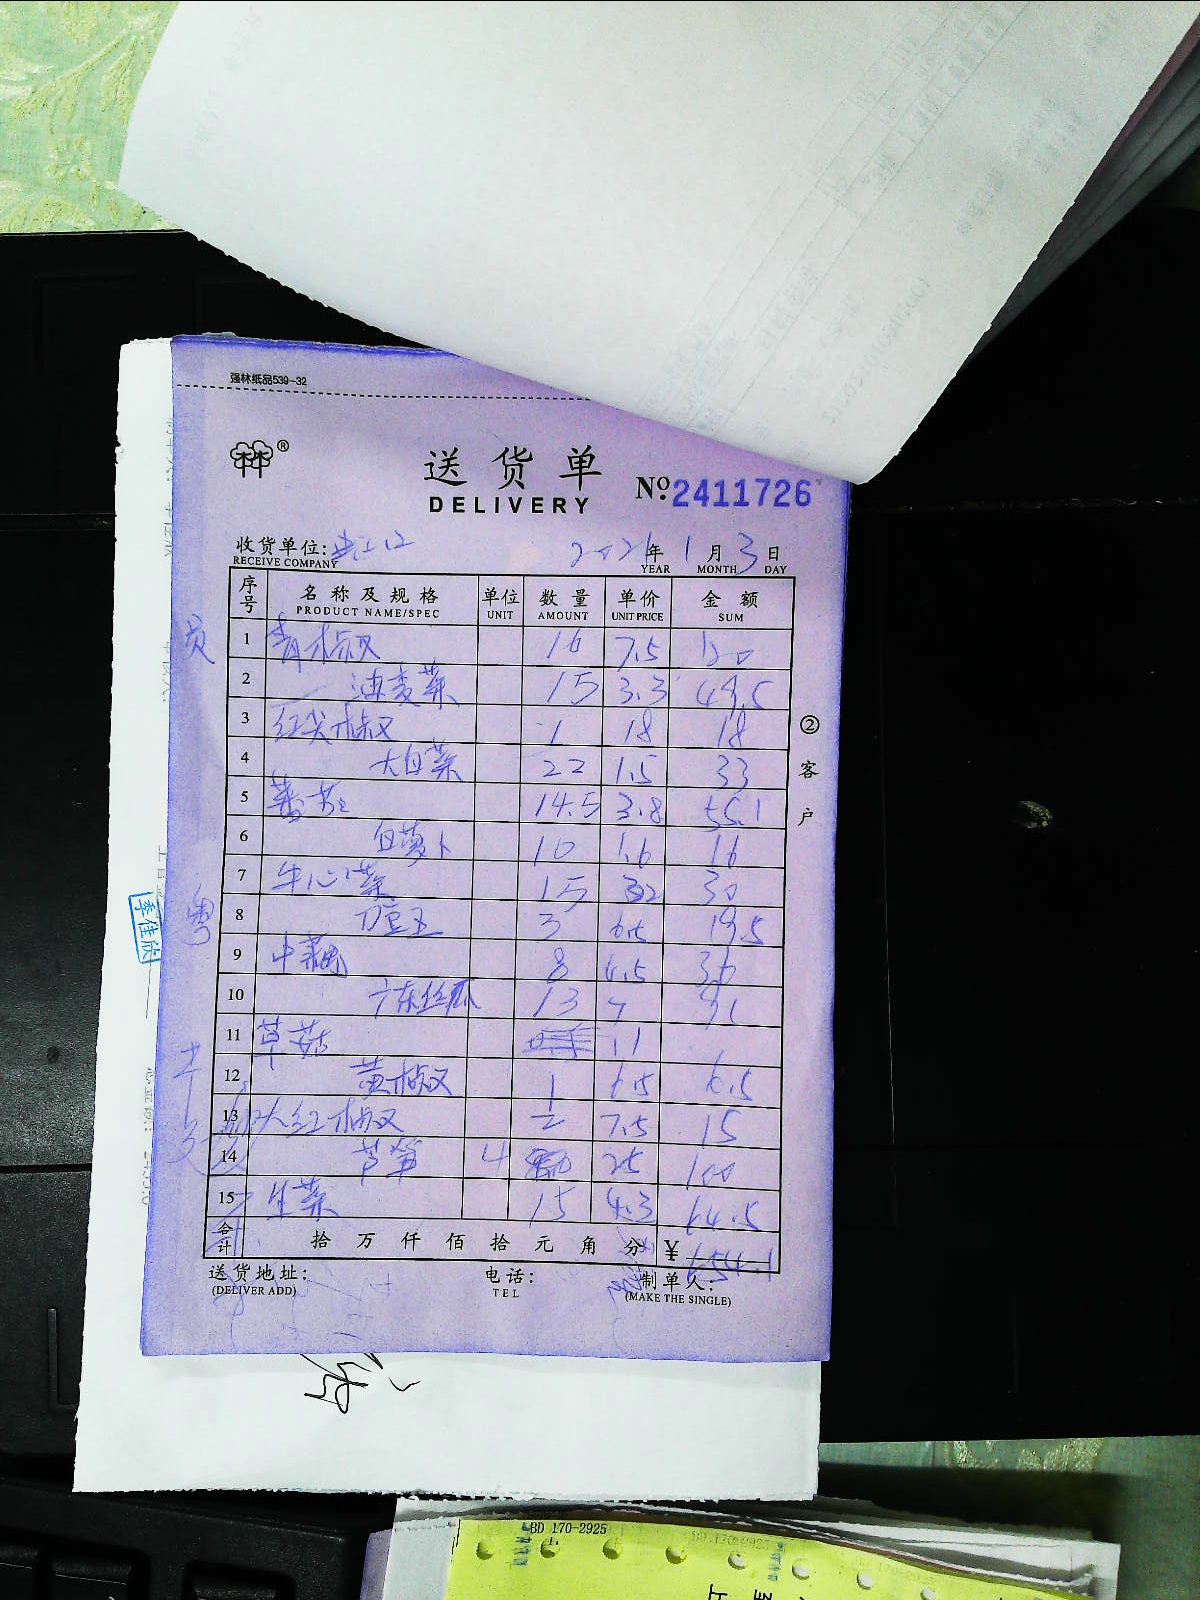 强林纸品539-32
®
送货单
DELIVERY
No 2411726
收货单位:
RECEIVE COMPANY
2021年1月3日
YEAR MONTH DAY
序号 名称及规格 单位 数量 单价 金额
PRODUCT NAME/SPEC UNIT AMOUNT UNIT PRICE SUM
1 青椒 16 7.5 120
2 油麦菜 15 3.3 49.5
3 红尖椒 1 18 18
4 大白菜 22 1.5 33
5 蕃茄 14.5 3.8 55.1
6 白萝卜 10 1.6 16
7 牛心菜 15 30
8 刀豆 3 6.5 19.5
9 中 8 4.5 36
10 广东丝瓜 13 7 91
11 草菇 11
12 黄椒 1 6.5 6.5
13 大红椒 2 7.5 15
14 芦笋 4 25 100
15 生菜 15 4.3 64.5
合计 拾万仟佰拾元角分 ¥ 654.1
②客户
送货地址: 电话: 制单人:
(DELIVER ADD) TEL (MAKE THE SINGLE)
季佳欣
BD 170-2925